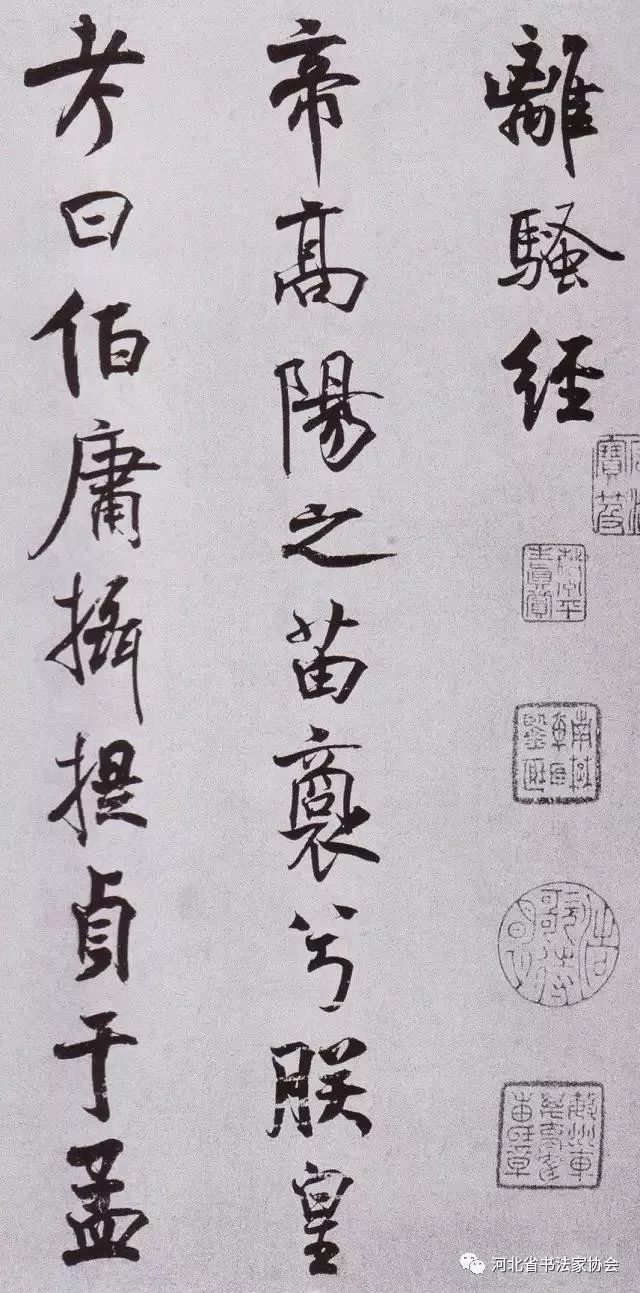 離騷經
帝高陽之苗裔兮朕皇
考曰伯庸攝提貞于孟
河北省书法家协会